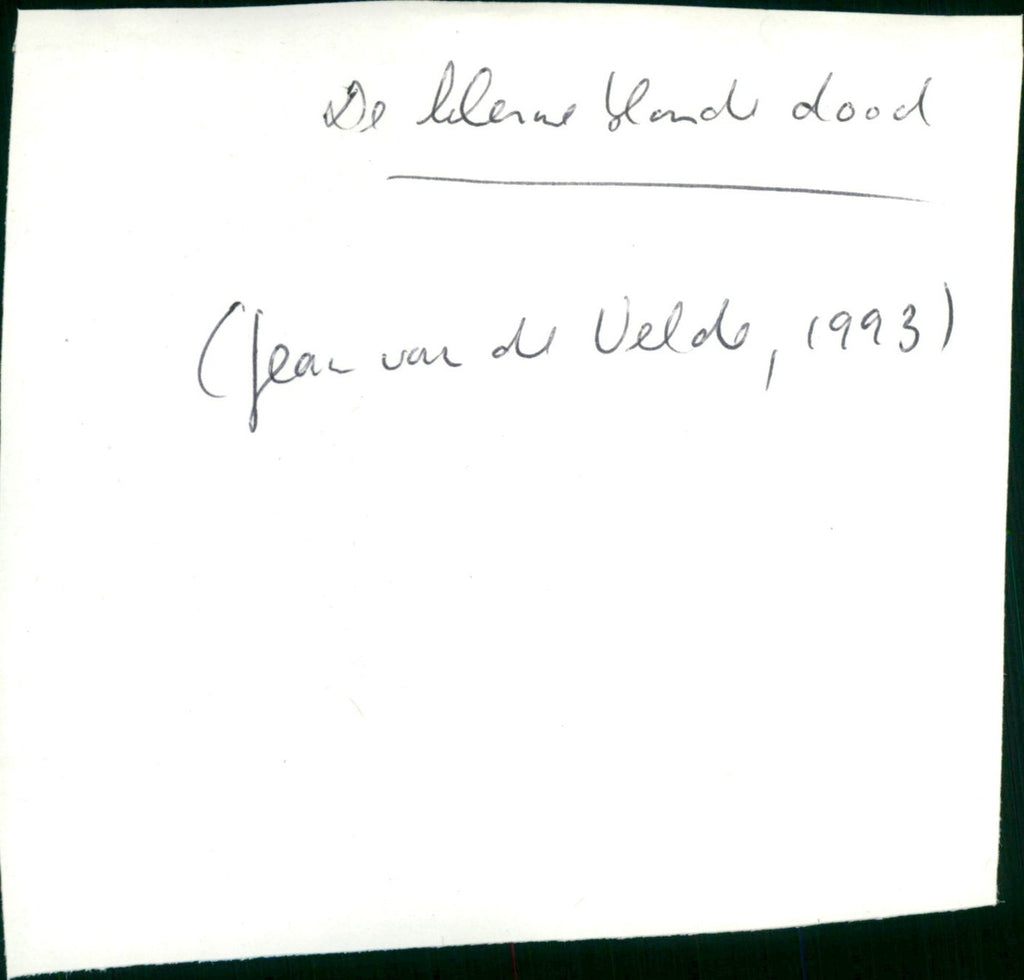 De kleine blonde dood
(Jean van de Velde, 1993)